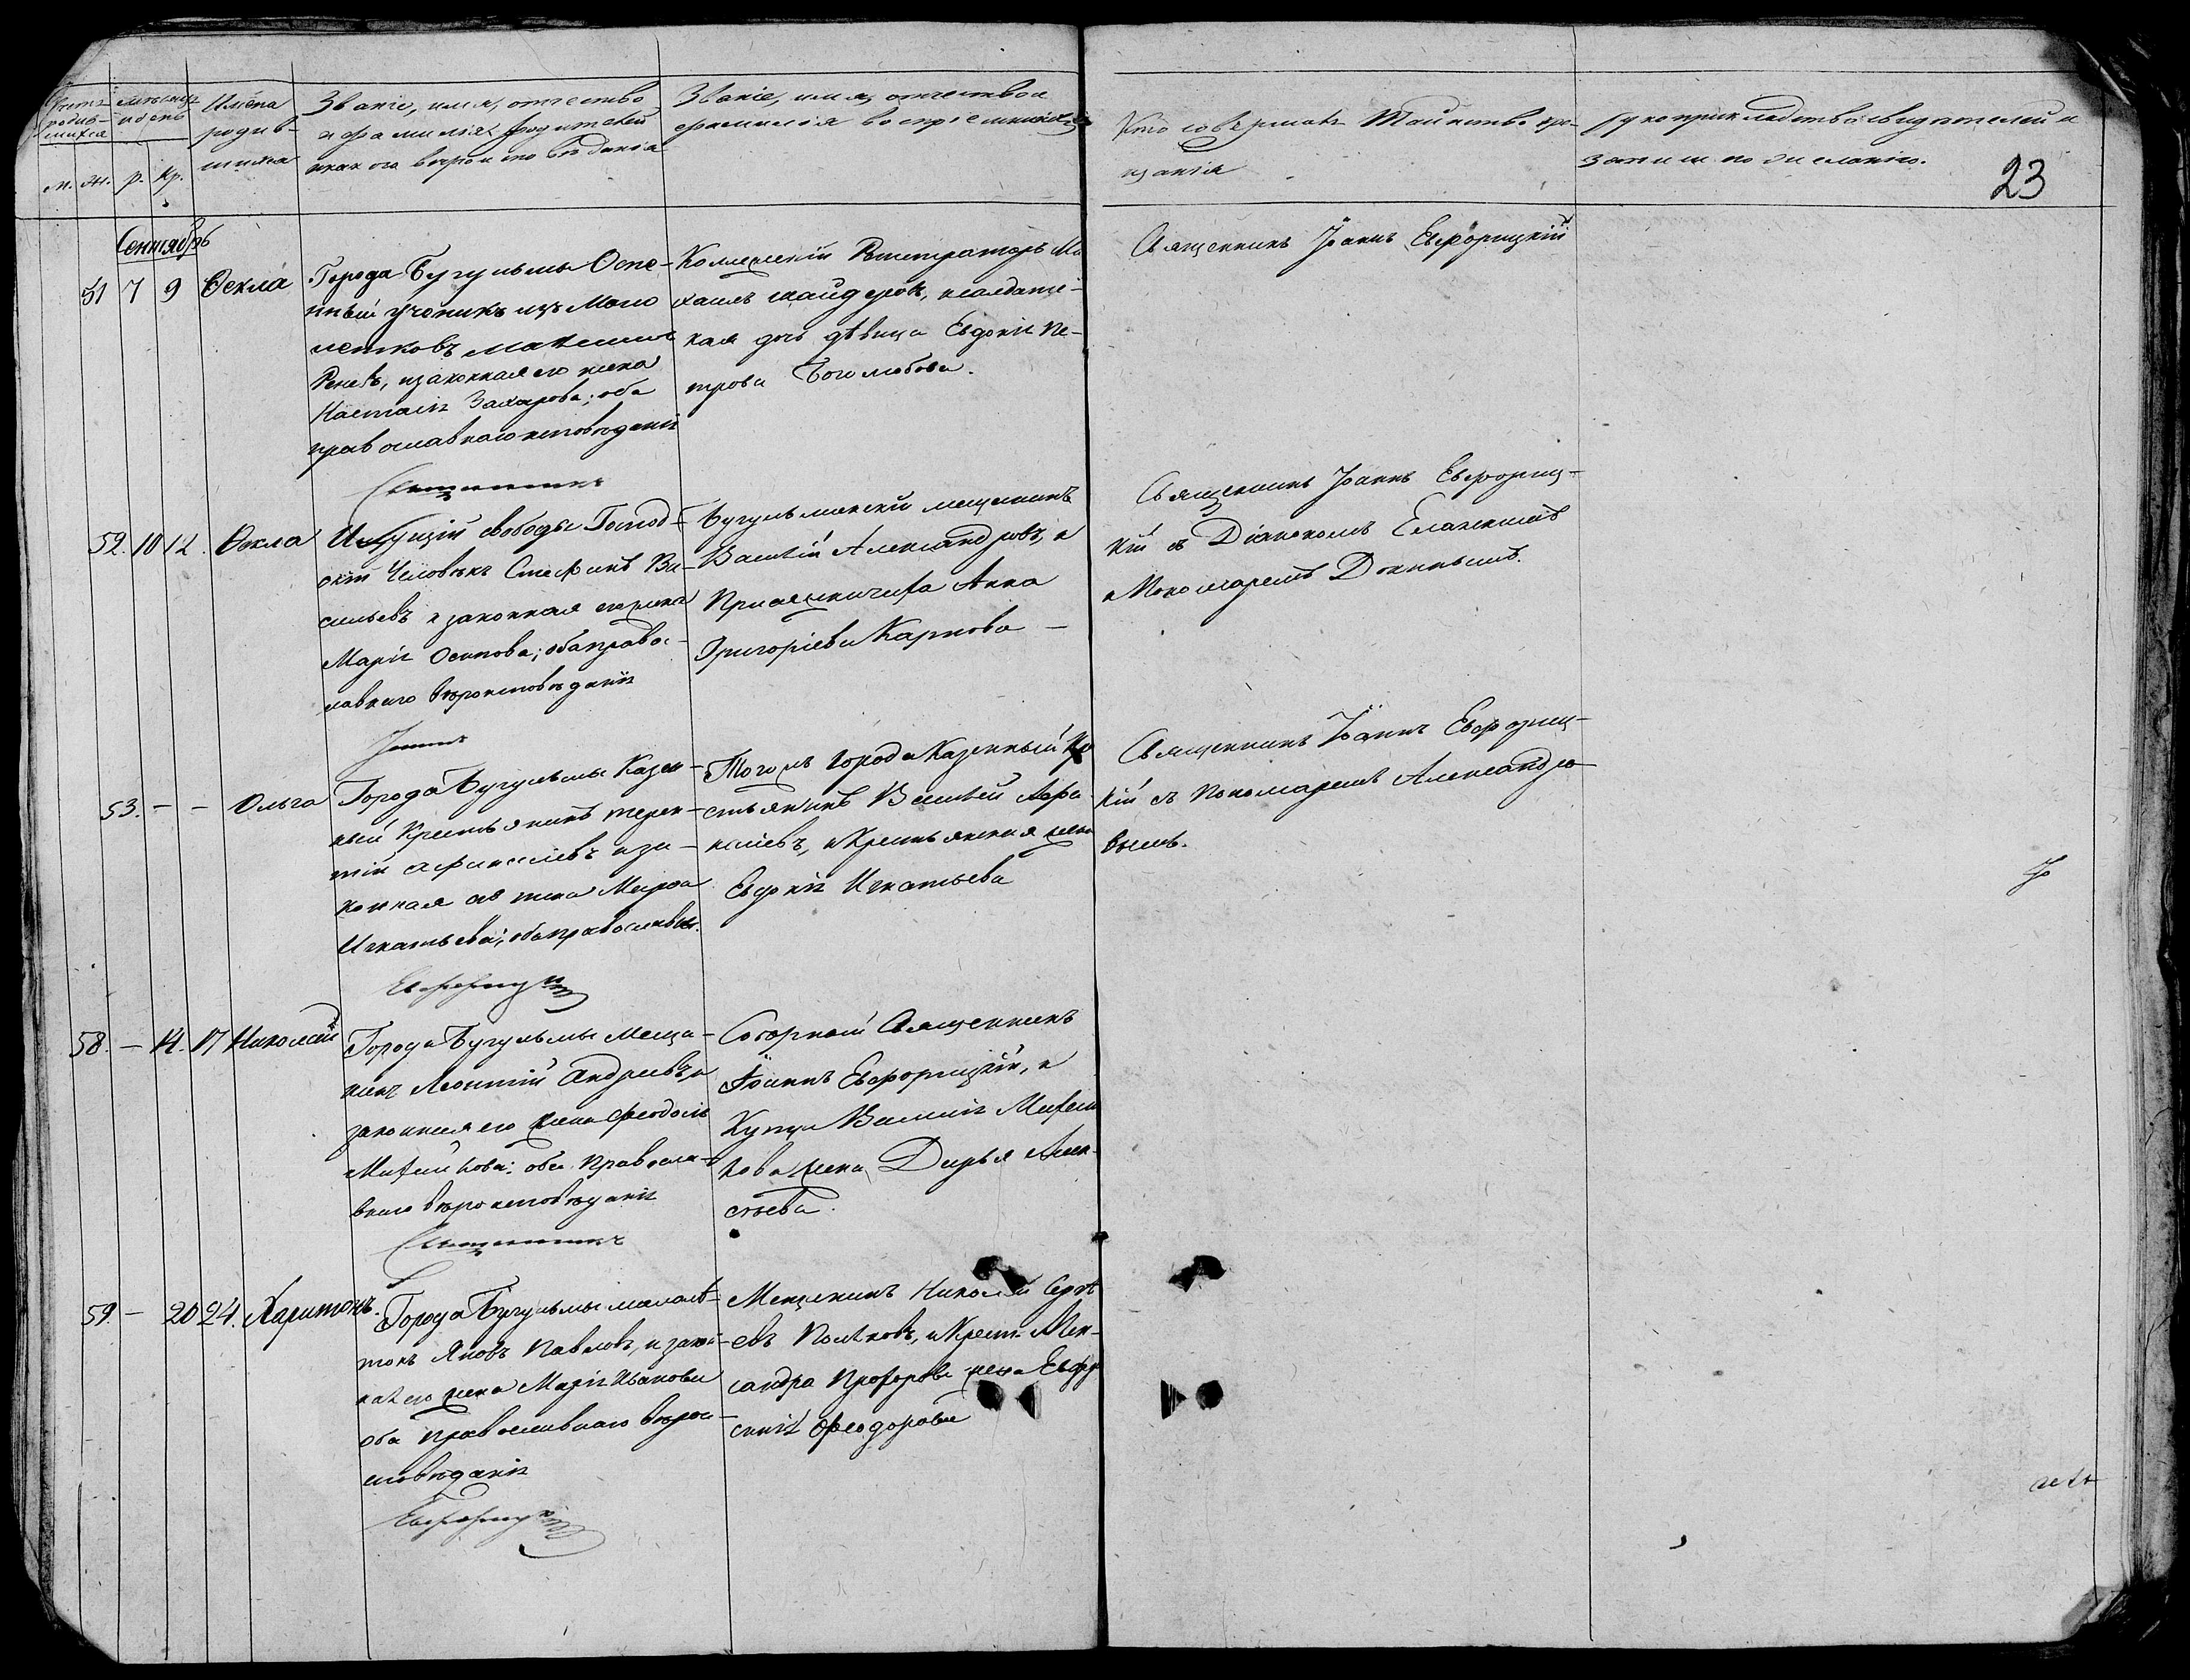 Счетъ родив-
шихся
м. ж.
мѣсяцъ
и день
р. кр.
Имена
родив-
шихся
Званіе, имя, отчество
и фамилія родителей
и какого вѣроисповѣданія
Званіе, имя, отчество и
фамилія воспріемниковъ
Кто совершалъ Таинство кре-
щенія
Рукоприкладство свидѣтелей
записи по желанію.
23
Сентябрь
51 7 9 Ѳекла
Города Бугульмы Оспе-
нный ученикъ изъ Мало
лѣтковъ
и законная его жена
Настасія Захарова; оба
православнаго исповѣданія
Коллежскій Регистраторъ Ми
хаилъ и солдатс-
кая дочь дѣвица Евдокія Пе-
трова Боголюбова.
Священникъ Іоаннъ Евфорицкій
Священникъ
52. 10 12. Ѳекла
Ищущій свободы Господ-
скій Человѣкъ Стефанъ Ва-
сильевъ и законная его жена
Марія Осипова; оба правос-
лавнаго вѣроисповѣданія
Бугульминскій мещанинъ
Василій Александровъ, и
Григоріева Карпова
Анна
Священникъ Іоаннъ Евфориц-
кій съ Діакономъ
и Пономаремъ
Іоаннъ
53. - - Ольга
Города Бугульмы Казен-
ный Крестьянинъ Терен-
тій Афанасіевъ и за-
конная его жена Марфа
Игнатьева; оба православн.
Того жъ города Казенный Кре
стьянинъ Василій Афа-
насіевъ, и Крестьянская жена
Евдокія Игнатьева
Священникъ Іоаннъ Евфориц-
кій съ Пономаремъ Александро-
вымъ.
Евфорицкій
58. - 14. 17 Николай
Города Бугульмы Меща-
нинъ Леонтій Андреевъ, и
законная его жена Феодосія
Михайлова: оба Правосла-
внаго вѣроисповѣданія
Соборный Священникъ
Іоаннъ Евфорицкій, и
Купца Василія Михай
лова жена Дарья Алек-
сѣева.
Священникъ
59. - 20 24. Харитонъ.
Города Бугульмы малолѣ-
токъ Яковъ Павловъ, и закон-
ная его жена Марія Иванова
оба православнаго вѣрои-
сповѣданія
Мещанинъ Николай Сергѣ
евъ Поляковъ, и Крест. Алек-
сандра Прохорова жена Евфро
синія Феодорова
Евфорицкій